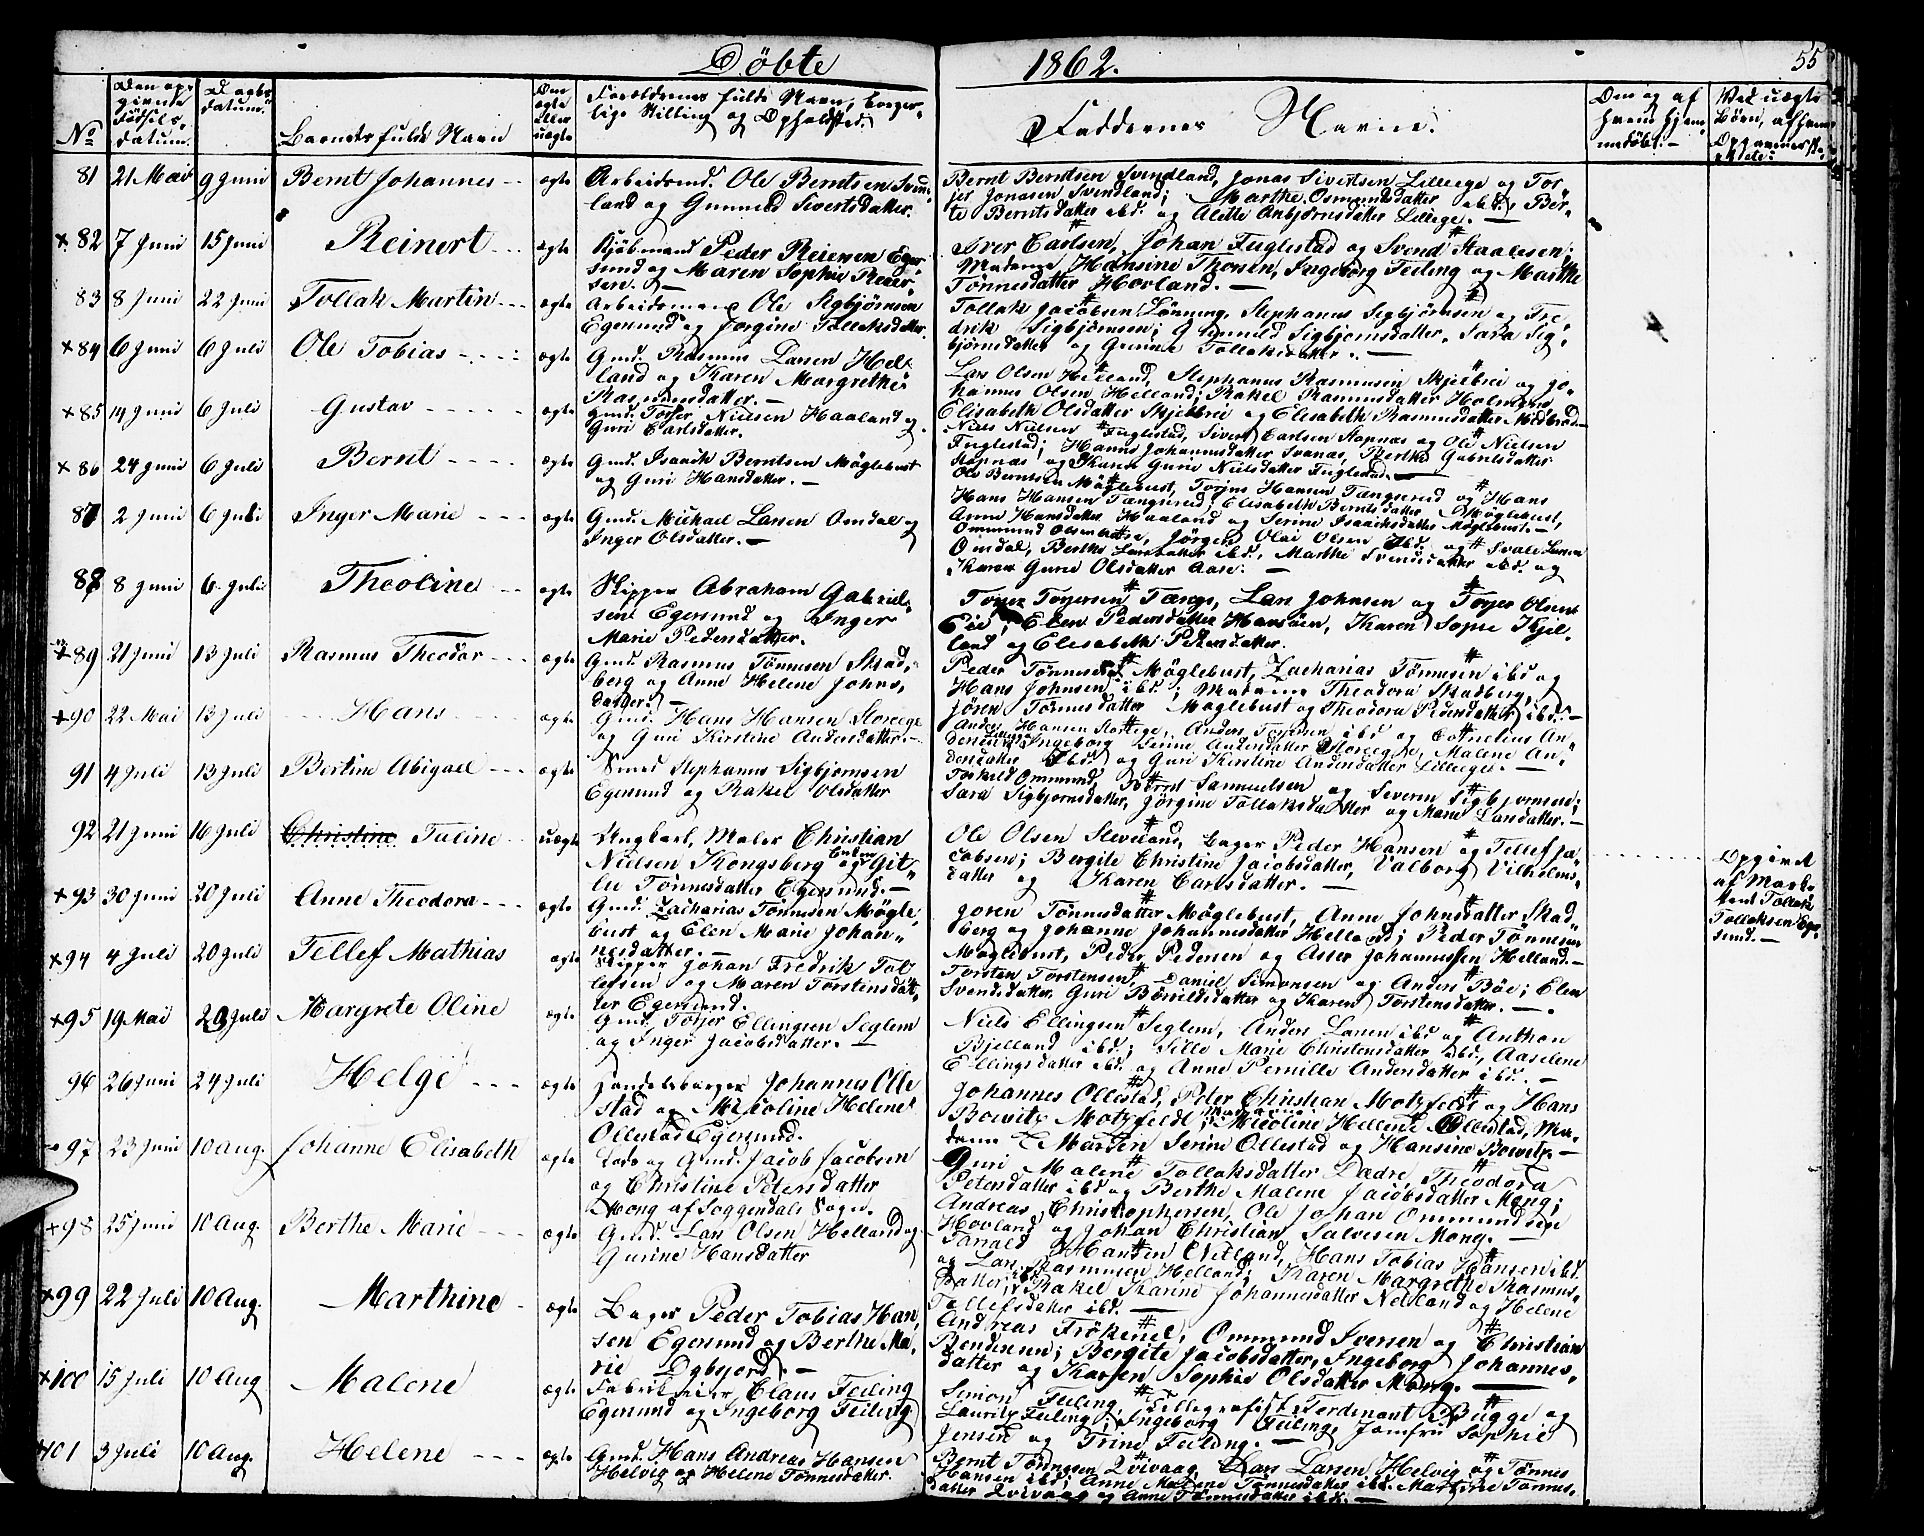 Döbte 1862. 55
No
Den op-
givne
födsels-
datum.
Daabs-
datum.
Barnets fulde Navn
Om
ægte
eller
uægte
Forældrenes fulde Navn, borger-
lige Stilling og Opholdsted.
Faddernes Navne.
Om og af
hvem hjem-
medöbt.
Ved uægte
Börn, af hvem
81 21 Mai 9 Juni Bernt Johannes ægte
Arbeidsmd. Ole Berntsen Svind-
land og Gunnild Sivertsdatter.
Bernt Berntsen Svindland, Jonas Sivertsen Lilleege og Tor-
jer Jonasen Svindland; Marthe Osmundsdatter ibd, Ber-
te Berntsdatter ibd. og Alette Asbjørnsdatter Lillege.
82 7 Juni 15 Juni Reinert ægte
Kjöbmand Peder Reiersen Eger-
sund og Maren Sophie Reier-
sen.
Iver Carlsen, Johan Fuglestad og Svend Staalesen;
Madame Hansine Thorsen, Ingeborg Feiling og Marthe
Tönnesdatter Hovland.
83 8 Juni 22 Juni Tollak Martin ægte
Arbeidsmand Ole Sigbjørnsen
Egersund og Jorgine Tollaksdatter.
Tollak Jacobsen Lönning, Stephanus Sigbjørnsen og Fre-
drik Sigbjørnsen; Gunnild Sigbjørnsdatter, Sara Sig-
bjørnsdatter og Gunine Tollaksdatter.
84 6 Juni 6 Juli Ole Tobias ægte
Gmd. Rasmus Larsen Hel-
land og Karen Margrethe
Rasmusdatter.
Lars Olsen Helland, Stephanus Rasmusen Skjelbrei og Jo-
hannes Olsen Helland; Rakel Rasmusdatter Holmen,
Elisabeth Olsdatter Skjelbrei og Elisabeth Rasmusdatter Midbröd
85 14 Juni 6 Juli Gustav ægte
Gmd. Torjer Nielsen Haaland og
Guri Carlsdatter.
Niels Nielsen Fuglestad, Sivert Carlsen Stapnæs og Ole Nielsen
Fuglestad; Hanne Johannesdatter Svanæs, Berthe Gabrielsdatter
Stapnæs og Karen Gurie Nielsdatter Fuglestad.
86 24 Juni 6 Juli Bernt ægte
Gmd. Isaach Berntsen Möglebust
og Guri Hansdatter.
Ole Berntsen Möglebust, Torjus Hansen Tængsred og Hans
Hans Hansen Tængsred; Elisabeth Berntsdatter Möglebust,
Anne Hansdatter Haaland og Serine Isaachsdatter Möglebust.
87 2 Juni 6 Juli Inger Marie ægte
Gmd. Michael Larsen Omdal og
Inger Olsdatter.
Ommund Olsen Aase, Jörgen Olai Olsen ibd. og Svale Larsen
Omdal, Berthe Larsdatter ibd., Marthe Svendsdatter ibd. og
Karen Gurie Olsdatter Aase.
88 8 Juni 6 Juli Theoline ægte
Skipper Abraham Gabriel-
sen Egersund og Inger
Marie Pedersdatter.
Torjer Torjersen Tængs, Lars Johnsen og Torjer Olsen
Eie; Elen Pedersdatter Hansen, Karen Sopie Kjel-
land og Elisabeth Petersdatter.
89 21 Juni 13 Juli Rasmus Theodor ægte
Gmd. Rasmus Tönnesen Skad-
berg og Anne Helene Johns-
datter.
Peder Tönnesen Möglebust, Zacharias Tönnesen ibd og
Hans Johnsen ibd.; Madame Theodora Skadberg,
Jören Tönnesdatter Möglebust og Theodora Pedersdatter ibd.
90 22 Mai 13 Juli Hans ægte
Gmd. Hans Hansen Storeege
og Guri Kirstine Andersdatter.
91 4 Juli 13 Juli Bertine Abigael ægte
Smed Stephanus Sigbjørnsen
Egersund og Rakel Olsdatter
Torkild Ommund, Bernt Samuelsen og Severin Sigbjørnsen;
Sara Sigbjørnsdatter, Jörgine Tollaksdatter og Marie Larsdatter.
92 21 Juni 16 Juli Christine Taline uægte
Ungkarl, Maler Christian
Nielsen Kongsberg og Enken Git-
le Tönnesdatter Egersund.
Ole Olsen Sleveland, Bager Peder Hansen og Tellef Ja-
cobsen; Bergite Christine Jacobsdatter, Valborg Vilhelms-
datter og Karen Carlsdatter.
Opgivet
Tollak
Tollaksen Eger-
sund.
93 30 Juni 20 Juli Anne Theodora ægte
Gmd. Zacharias Tönnesen Mögle-
bust og Elen Marie Johan-
nesdatter.
Joren Tönnesdatter Möglebust, Anne Johnsdatter Skad-
berg og Johanne Johannesdatter Helland; Peder Tönnesen
Möglebust, Peder Pedersen og Asser Johannessen Helland.
94 4 Juli 20 Juli Tellef Mathias ægte
Skipper Johan Fredrik Tol-
lefsen og Maren Torstensdat-
ter Egersund.
Torsten Torstensen, Daniel Simonsen og Anders Böe; Elen
Svendsdatter, Guri Bömildsdatter og Karen Torstensdatter.
95 19 Mai 20 Juli Margrete Oline ægte
Gmd. Torjer Ellingsen Seglem
og Inger Jacobsdatter.
Niels Ellingsen Seglem, Anders Larsen ibd og Anthon
Bjelland ibd; Sille Marie Christensdatter ibd., Aaselene
Ellingsdatter ibd. og Anne Pernille Andersdatter ibd.
96 26 Juni 24 Juli Helge ægte
Handelsborger Johannes Olle-
stad og Nicoline Helene
Ollestad Egersund.
Johannes Ollestad, Peter Christian Motzfeldt og Hans
Bowitz Motzfeldt; Madame Nicoline Hellene Ollestad, Ma-
dame C. Marten Serine Ollestad og Hansine Bowitz.
97 23 Juni 10 Aug. Johanne Elisabeth ægte
Lods og Gmd. Jacob Jacobsen
og Christine Petersdatter
Mong af Soggendals Sogn.
Guri Malene Tollaksdatter Lædre, Theodora
Petersdatter ibd og Berthe Malene Jacobsdatter Mong;
Andreas Christophersen, Ole Johan Ommundsen
Hovland og Johan Christian Salvesen Mong.
98 25 Juni 10 Aug. Berthe Marie ægte
Gmd. Lars Olsen Helland og
Gurine Hansdatter
og Lars Rasmusen Helland; Karen Margrethe Rasmus-
datter ibd, Rakel Karine Johannesdatter Netland og Helene
Tellefsdatter ibd.
99 22 Juli 10 Aug. Marthine ægte
Bager Peder Tobias Han-
sen Egersund og Berthe Ma-
rie Egbjerd.
Andreas Frökenel, Ommund Iversen og Christian
Bendensen; Bergite Jacobsdatter, Ingeborg Johannes-
datter og Karen Sophie Olsdatter Mong.
100 15 Juli 10 Aug Malene ægte
Fabrikeier Claus Feiling
Egersund og Ingeborg Feiling
Simon Feiling, Tellegrafist Ferdinant Bugge og
Lauritz Feiling; Ingeborg Feiling, Jomfru Sophie
Jensen og Trine Feiling.
101 3 Juli 10 Aug. Helene ægte
Gmd. Hans Andreas Hansen
Helvig og Helene Tönnesdatter.
Bernt Tönnesen Qvivaag, Lars Larsen Helvig og Tönnes
Hansen ibd; Anne Malene Tönnesdatter ibd. Martine Tönnes-
datter Qvivaag og Anne Tönnesdatter ibd.